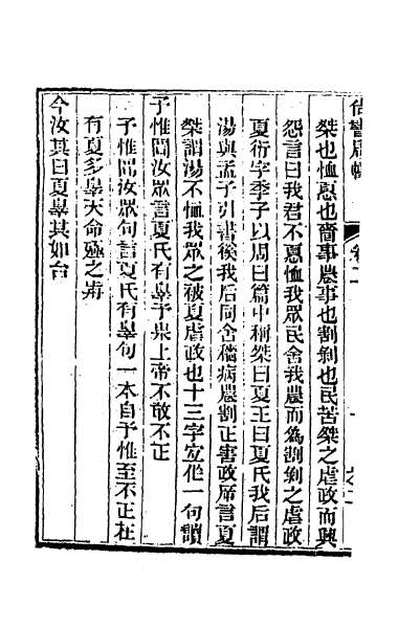 桀也恤惠也嗇事農事也割剝也民苦桀之虐政而興
怨言曰我君不惠恤我眾民舍我農而為割剝之虐政
夏衍字季子以周曰篇中稱桀曰夏王曰夏氏我后謂
湯與孟子引書徯我后同舍穡病農割正害政屬言夏
桀謂湯不恤我眾之被夏虐政也十三字宜作一句讀
予惟聞汝眾言夏氏有辠予畏上帝不敢不正
予惟聞汝眾句言夏氏有辠句一本自予惟至不正在
有夏多辠天命殛之歬
今汝其曰夏辠其如台